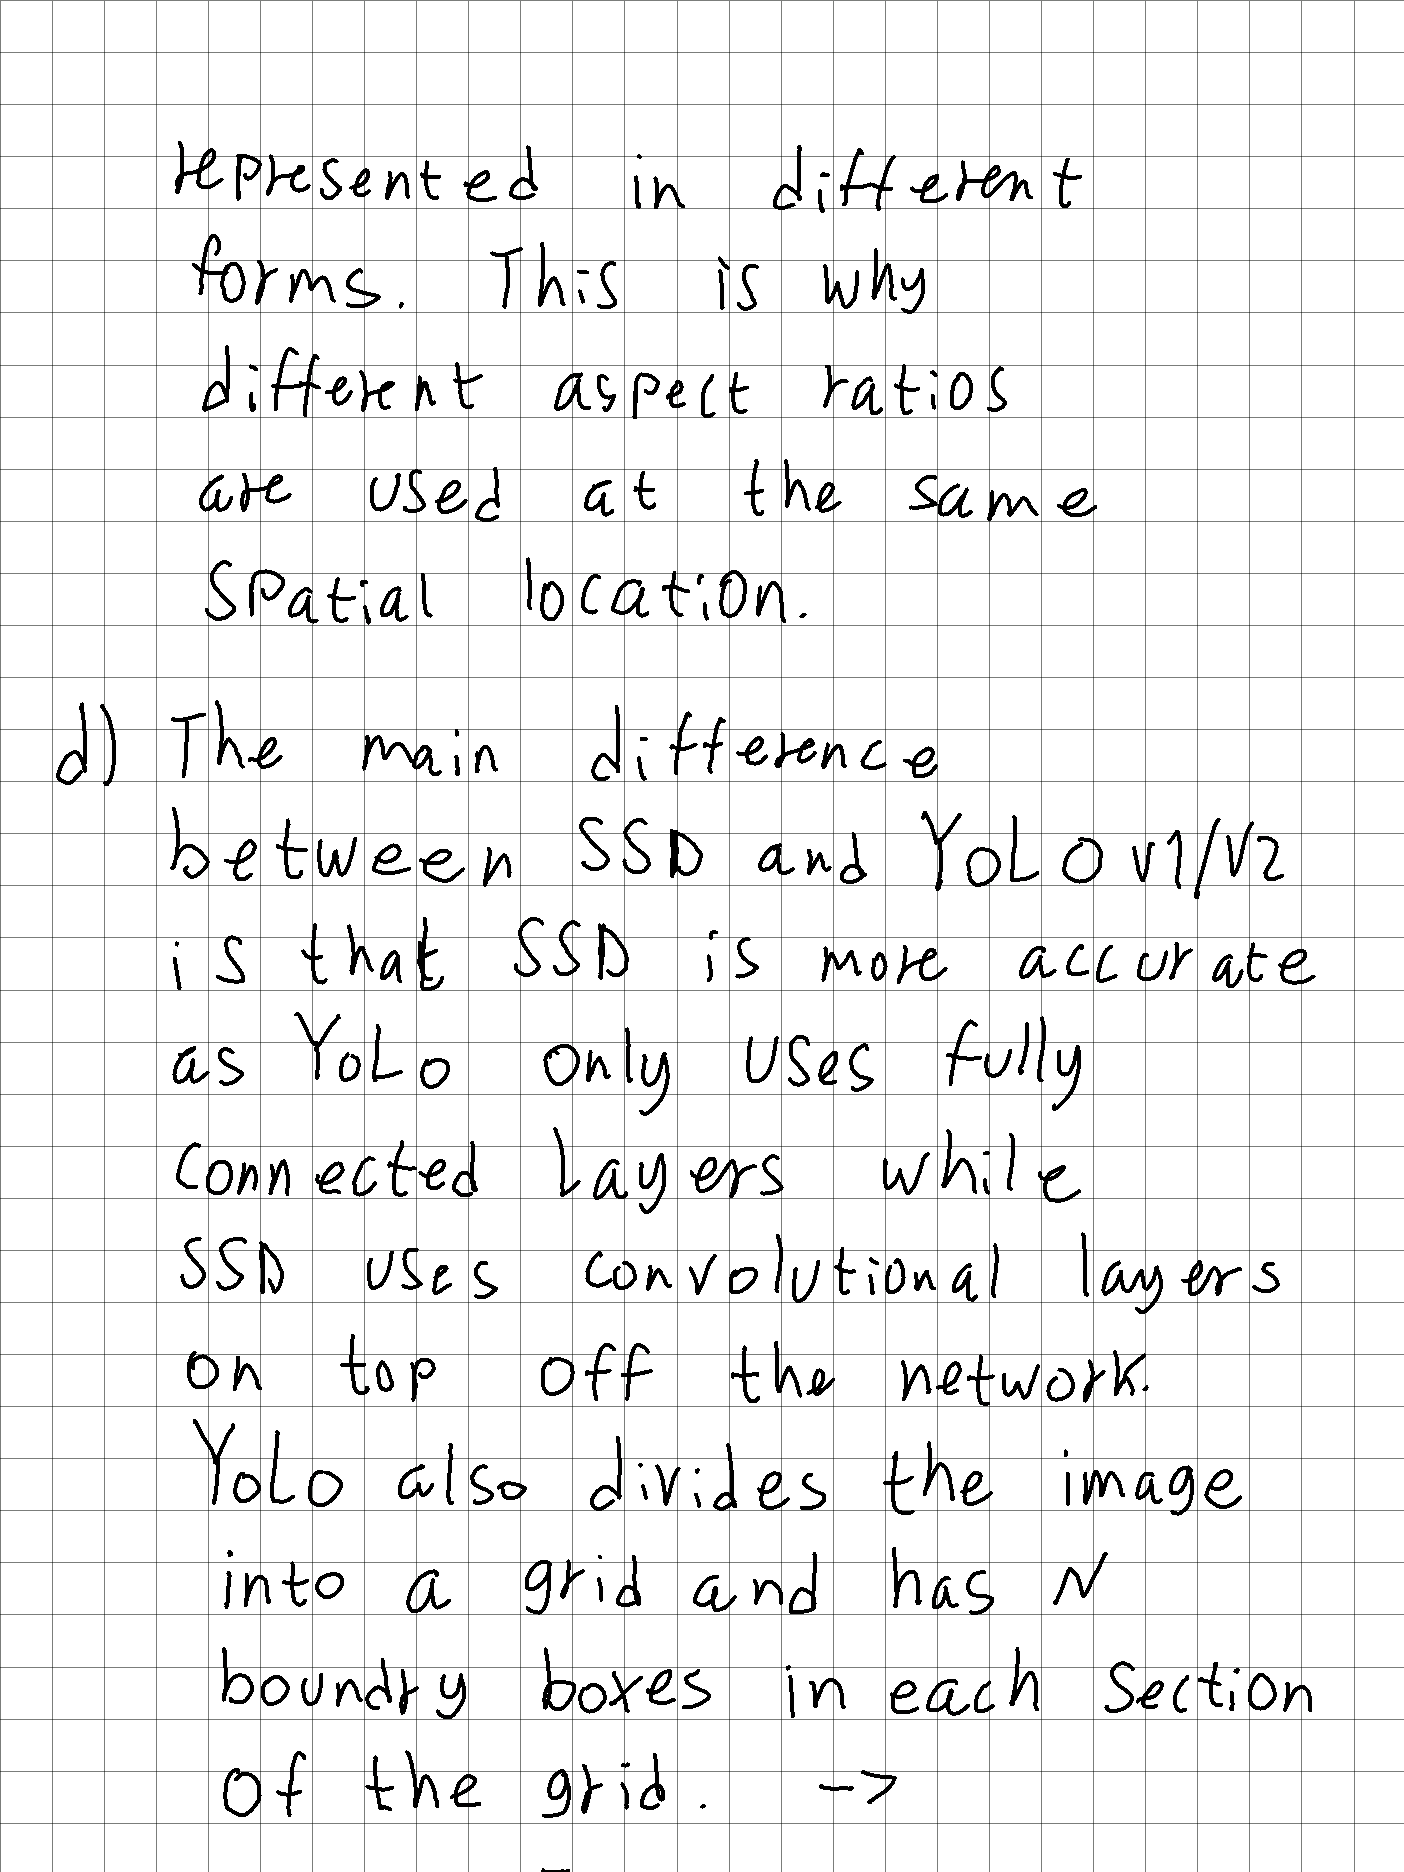 represented in different
forms. This is why
different aspect ratios
are used at the same
spatial location.
d) The main difference
between SSD and YOLO v1/v2
is that SSD is more accurate
as YOLO only uses fully
connected layers while
SSD uses convolutional layers
on top off the network.
YOLO also divides the image
into a grid and has N
boundry boxes in each section
of the grid. ->